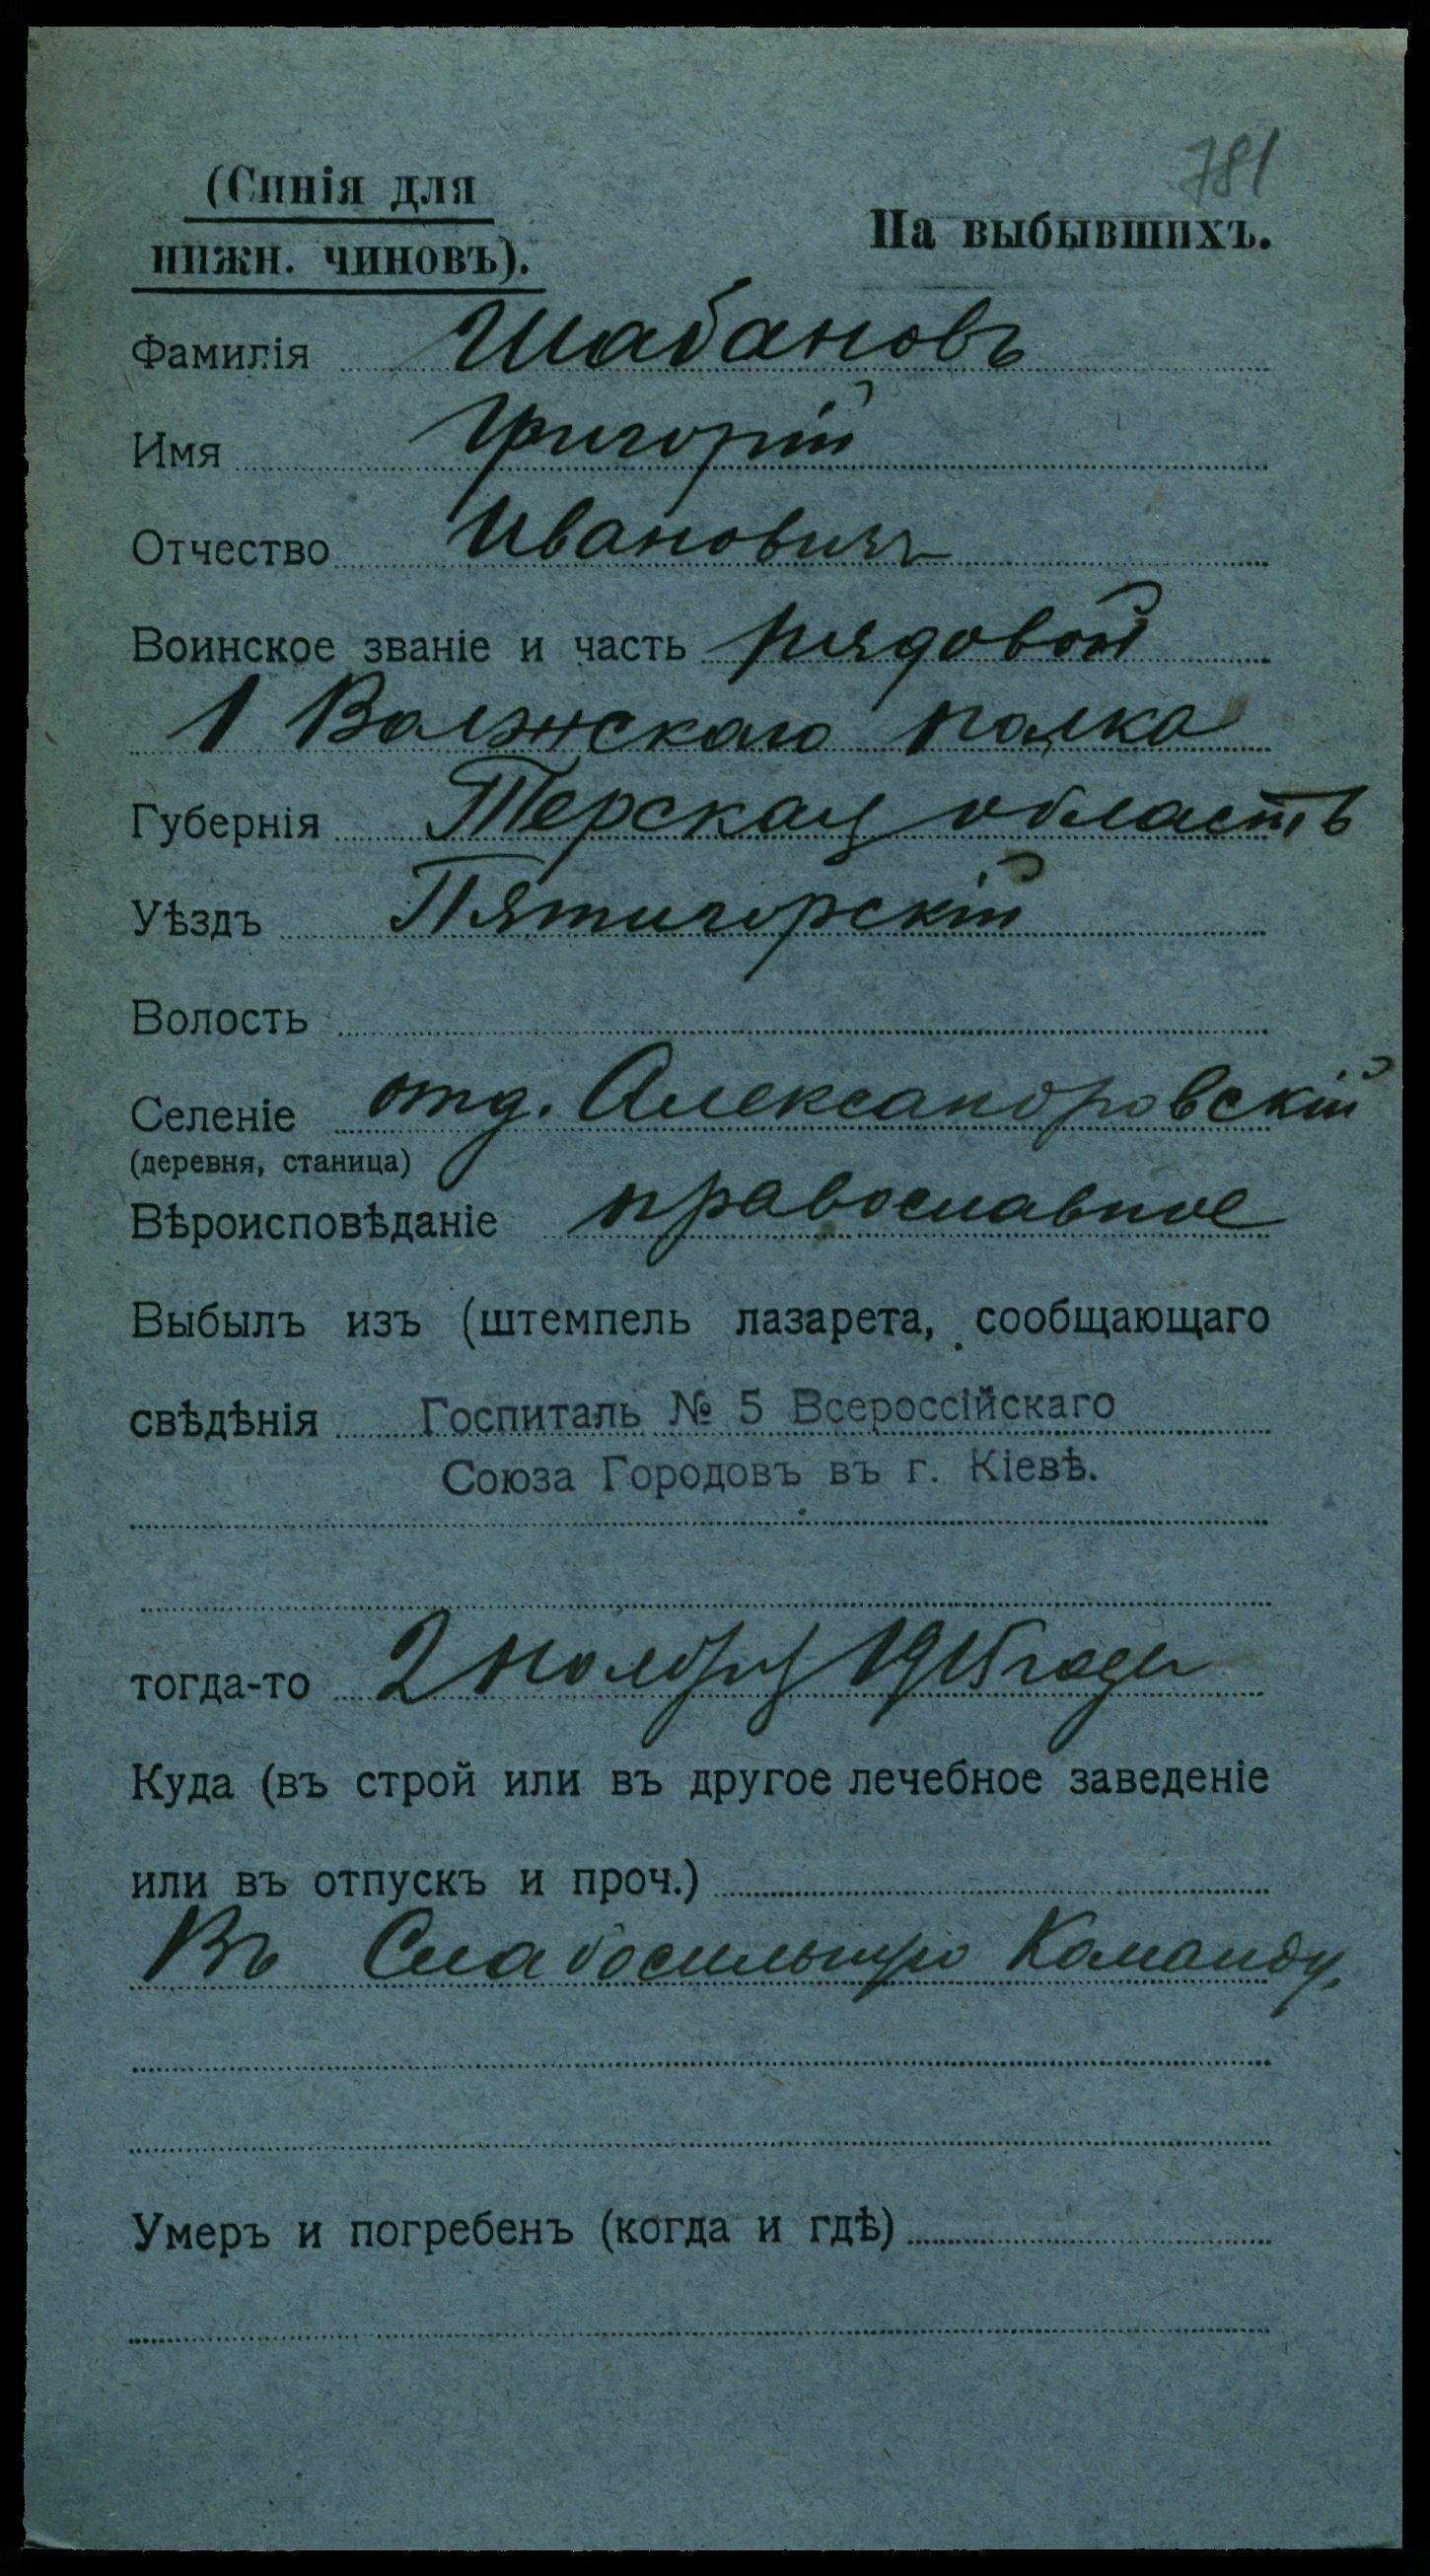 781
(Синія для
нижн. чиновъ).
На выбывшихъ.
Фамилія Шабановъ
Имя Григорій
Отчество Ивановичъ
Воинское званіе и часть рядовой
1 Волжскаго полка
Губернія Терская область
Уѣздъ Пятигорскій
Волость
Селеніе отд. Александровскій
(деревня, станица)
Вѣроисповѣданіе православное
Выбылъ изъ (штемпель лазарета, сообщающаго
свѣдѣнія Госпиталь № 5 Всероссійскаго
Союза Городовъ въ г. Кіевѣ.
тогда-то 2 ноября 1915 года
Куда (въ строй или въ другое лечебное заведеніе
или въ отпускъ и проч.)
Въ Слабосильную Команду.
Умеръ и погребенъ (когда и гдѣ)